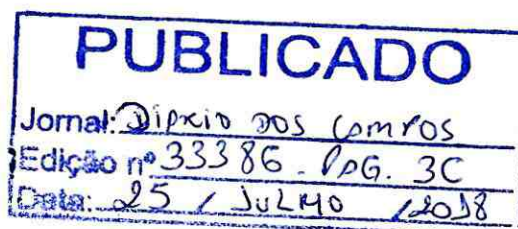 PUBLICADO
Jornal: Diário dos Campos
Edição nº 33386 - PAG. 3C
Data: 25 / JULHO /2018